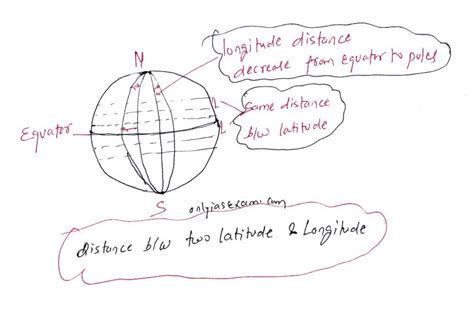 longitude distance
decrease from equator to poles
N
same distance
b/w latitude
Equator
S
onlyiasexam.com
distance b/w two latitude & Longitude